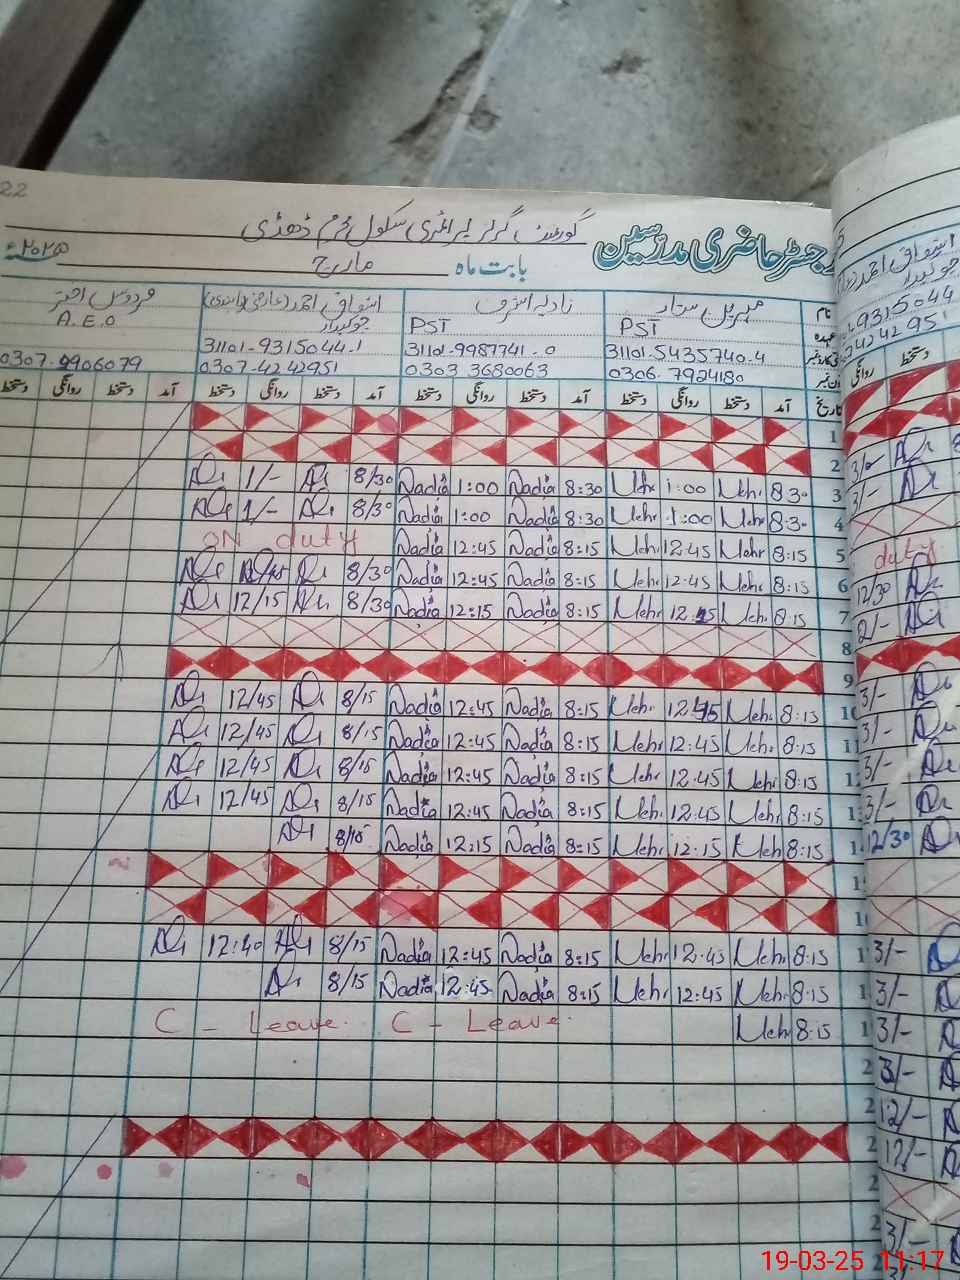 22
گورنمنٹ گرلز پرائمری سکول محرم ڈھڈی
رجسٹر حاضری مدرسین
بابت ماہ مارچ ۲۰۲۵ء
نام مہرین ستار نادیہ اشرف اشفاق احمد فردوس اختر
عہدہ PST PST چوکیدار A.E.O
31101-5435740-4 31101-9987741-0 31101-9315044-1
0306-7924180 0303 3680063 0307-4242951 0307-9906079
تاریخ آمد دستخط روانگی دستخط آمد دستخط روانگی دستخط آمد دستخط روانگی دستخط آمد دستخط روانگی دستخط
1
2
1/- 8/30 Nadia 1:00 Nadia 8:30 1:00 Mehr 8:30 3
1/- 8/30 Nadia 1:00 Nadia 8:30 Mehr 1:00 Mehr 8:30 4
ON duty Nadia 12:45 Nadia 8:15 Mehr 12:45 Mehr 8:15 5
8/30 Nadia 12:45 Nadia 8:15 Mehr 12:45 Mehr 8:15 6
12/15 8/30 Nadia 12:15 Nadia 8:15 Mehr Mehr 8:15 7
8
9
12/45 8/15 Nadia 12:45 Nadia 8:15 Mehr 12:45 Mehr 8:15 10
12/45 8/15 Nadia 12:45 Nadia 8:15 Mehr 12:45 Mehr 8:15
12/45 8/15 Nadia 12:45 Nadia 8:15 Mehr 12:45 Mehr 8:15
12/45 8/15 Nadia 12:45 Nadia 8:15 Mehr 12:45 Mehr 8:15
8/15 Nadia 12:15 Nadia 8:15 Mehr 12:15 Mehr 8:15
12:40 8/15 Nadia 12:45 Nadia 8:15 Mehr 12:45 Mehr 8:15
8/15 Nadia 12:45 Nadia 8:15 Mehr 12:45 Mehr 8:15
C - Leave C - Leave Mehr 8:15
اشفاق احمد
چوکیدار
9315044
4242951
روانگی دستخط
3/-
3/-
duty
12/30
2/-
3/-
3/-
3/-
3/-
12/30
3/-
3/-
3/-
3/-
12/-
12/-
3/-
19-03-25 11:17